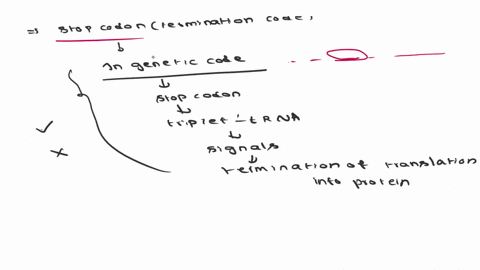 ⇒ stop codon (termination code,
↓
In genetic code
↓
stop codon
↓
triplet - tRNA
↓
signals
↓
termination of translation
into protein